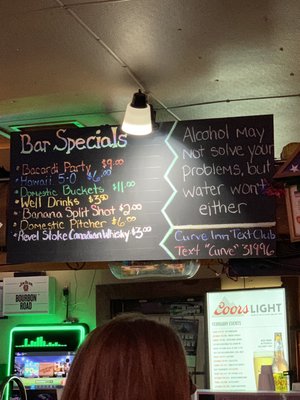 Bar Specials
Bacardi Party $9.00
Hawaii 5-0 $6.00
Domestic Buckets $11.00
Well Drinks $3.00
Banana Split Shot $2.00
Domestic Pitcher $6.00
Revel Stoke Canadian Whisky $3.00
Alcohol may
not solve your
problems, but
water won't
either
Curve Inn Text Club
Text "Curve" 31996
BOURBON
ROAD
Coors LIGHT
FEBRUARY EVENTS